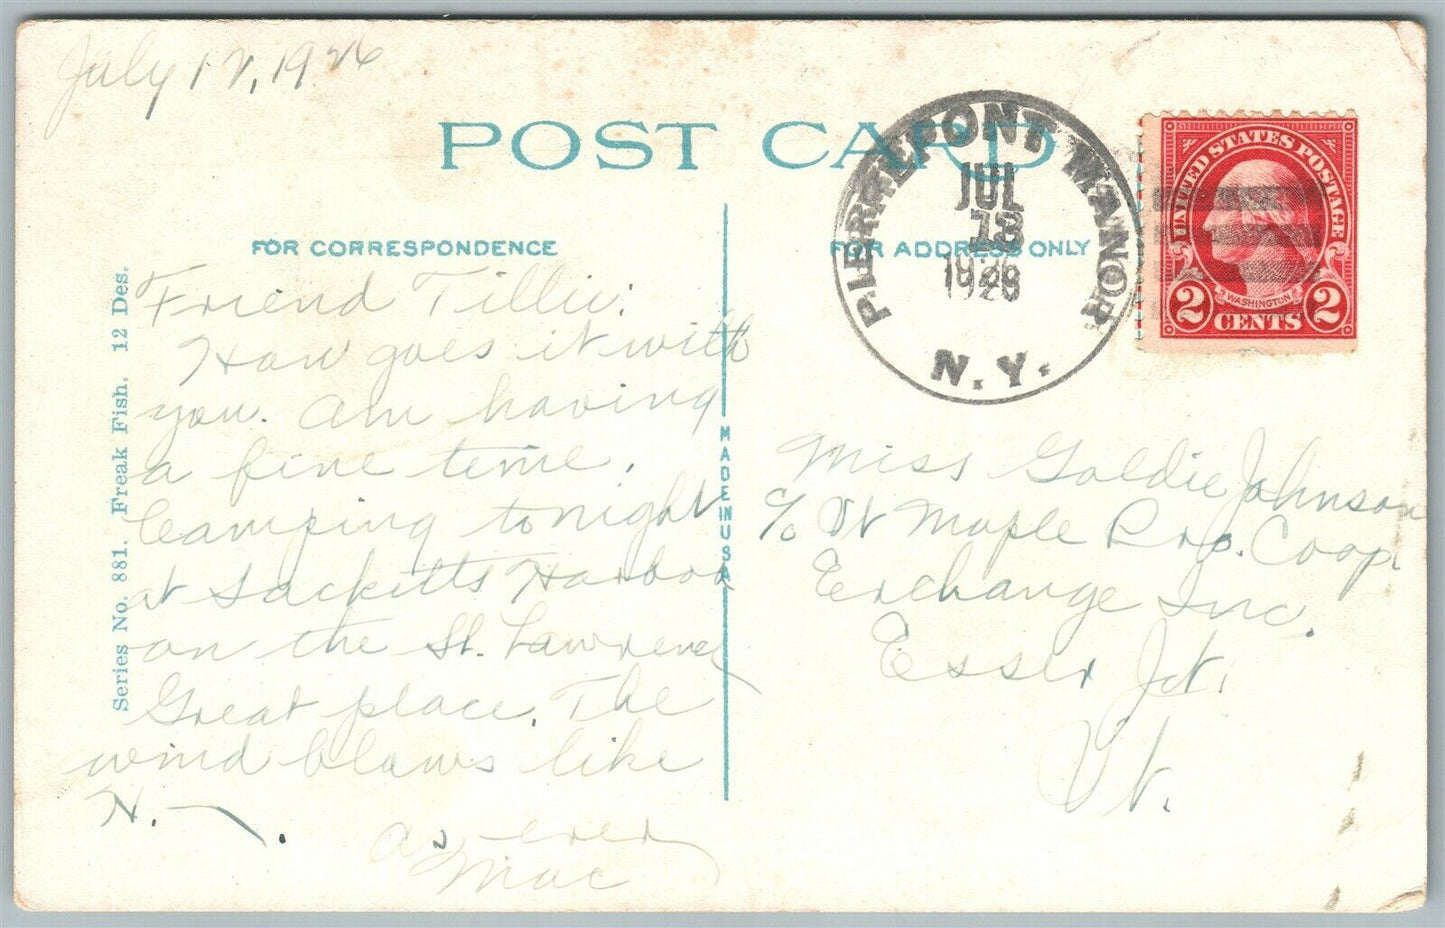 July 12, 1926
POST CARD
PIERREPONT MANOR
JUL
13
1926
N.Y.
UNITED STATES POSTAGE
WASHINGTON
2 CENTS 2
FOR CORRESPONDENCE
FOR ADDRESS ONLY
Series No. 881. Freak Fish. 12 Des.
MADE IN USA
Friend Tillie:
How goes it with
you. Am having
a fine time.
Camping tonight
at Sacketts Harbor
on the St. Lawrence
Great place. The
wind blows like
H. — .
As ever
Mac
Miss Goldie Johnson
c/o Vt Maple Pro. Coop.
Exchange Inc.
Essex Jct.
Vt.